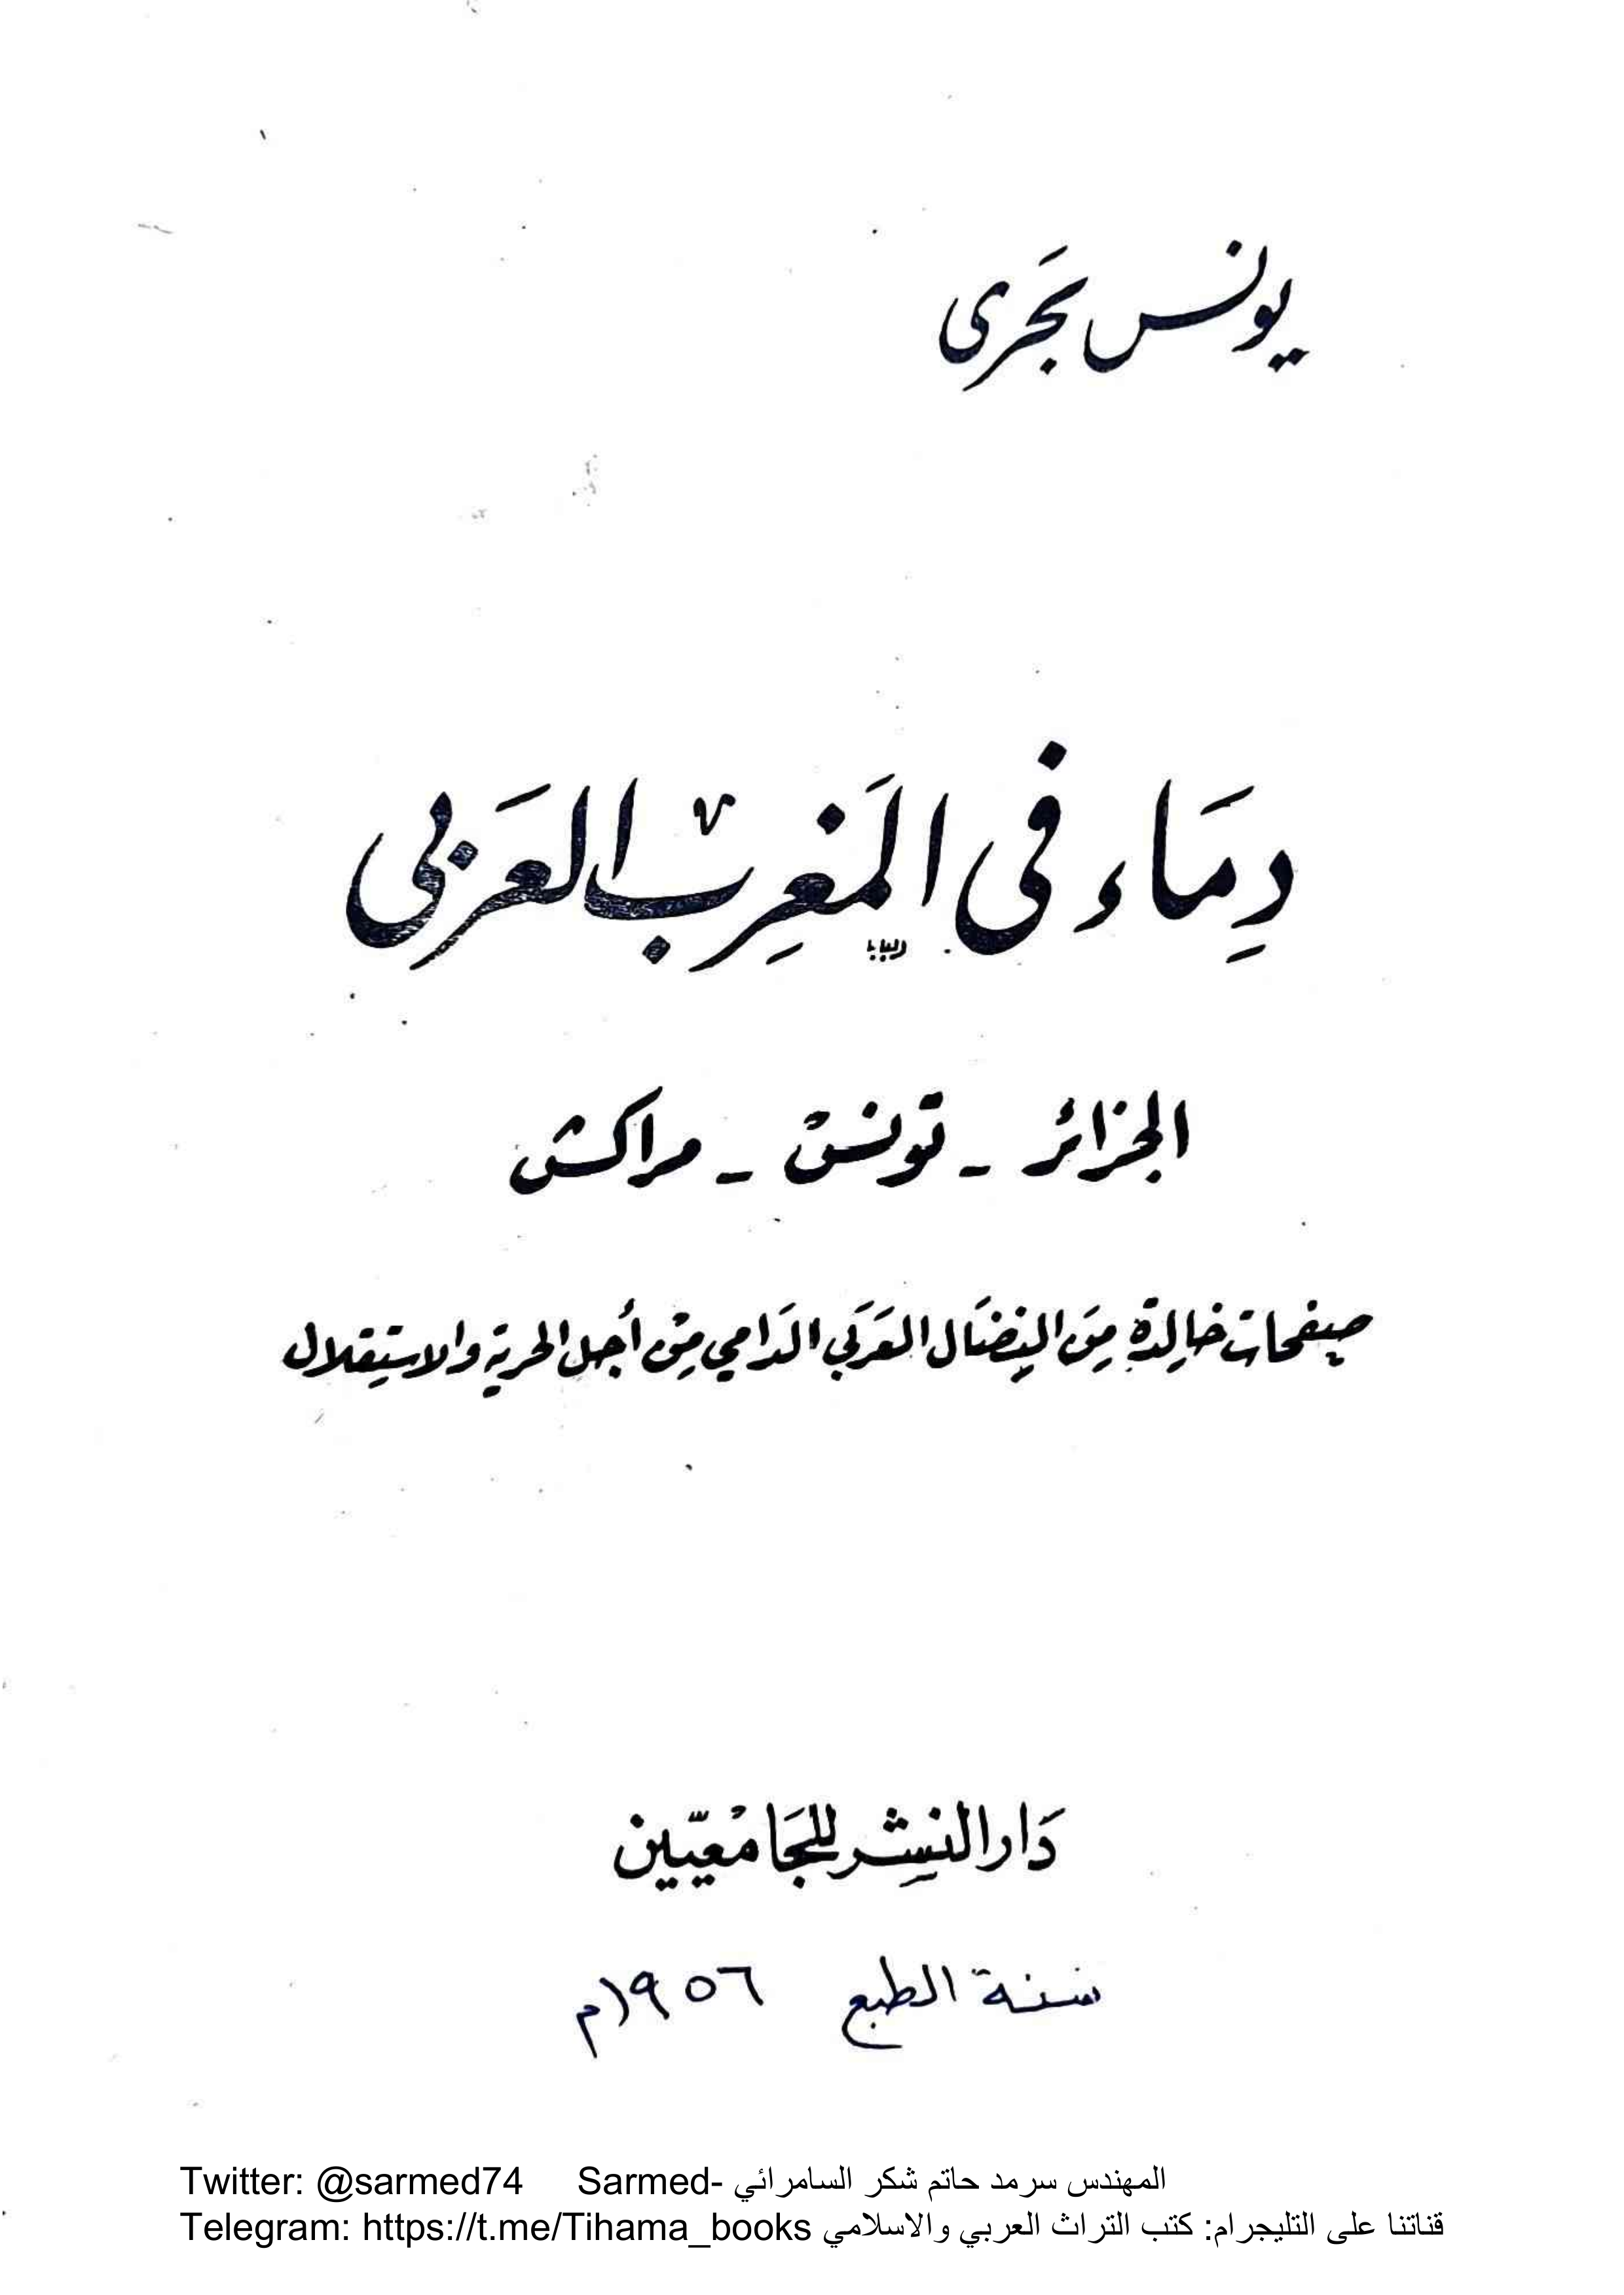 يونس بحرى
دِمَاء فى المَغرِب العَربى
الجزائر - تونس - مراكش
صفحات خالدة مِن النِضَال العَرَبي الدَامي مِن أجل الحرية والاستِقلال
دَار النِشر للجَامعيّين
سنة الطبع ١٩٥٦م
Twitter: @sarmed74 Sarmed- المهندس سرمد حاتم شكر السامرائي
Telegram: https://t.me/Tihama_books قناتنا على التليجرام: كتب التراث العربي والاسلامي